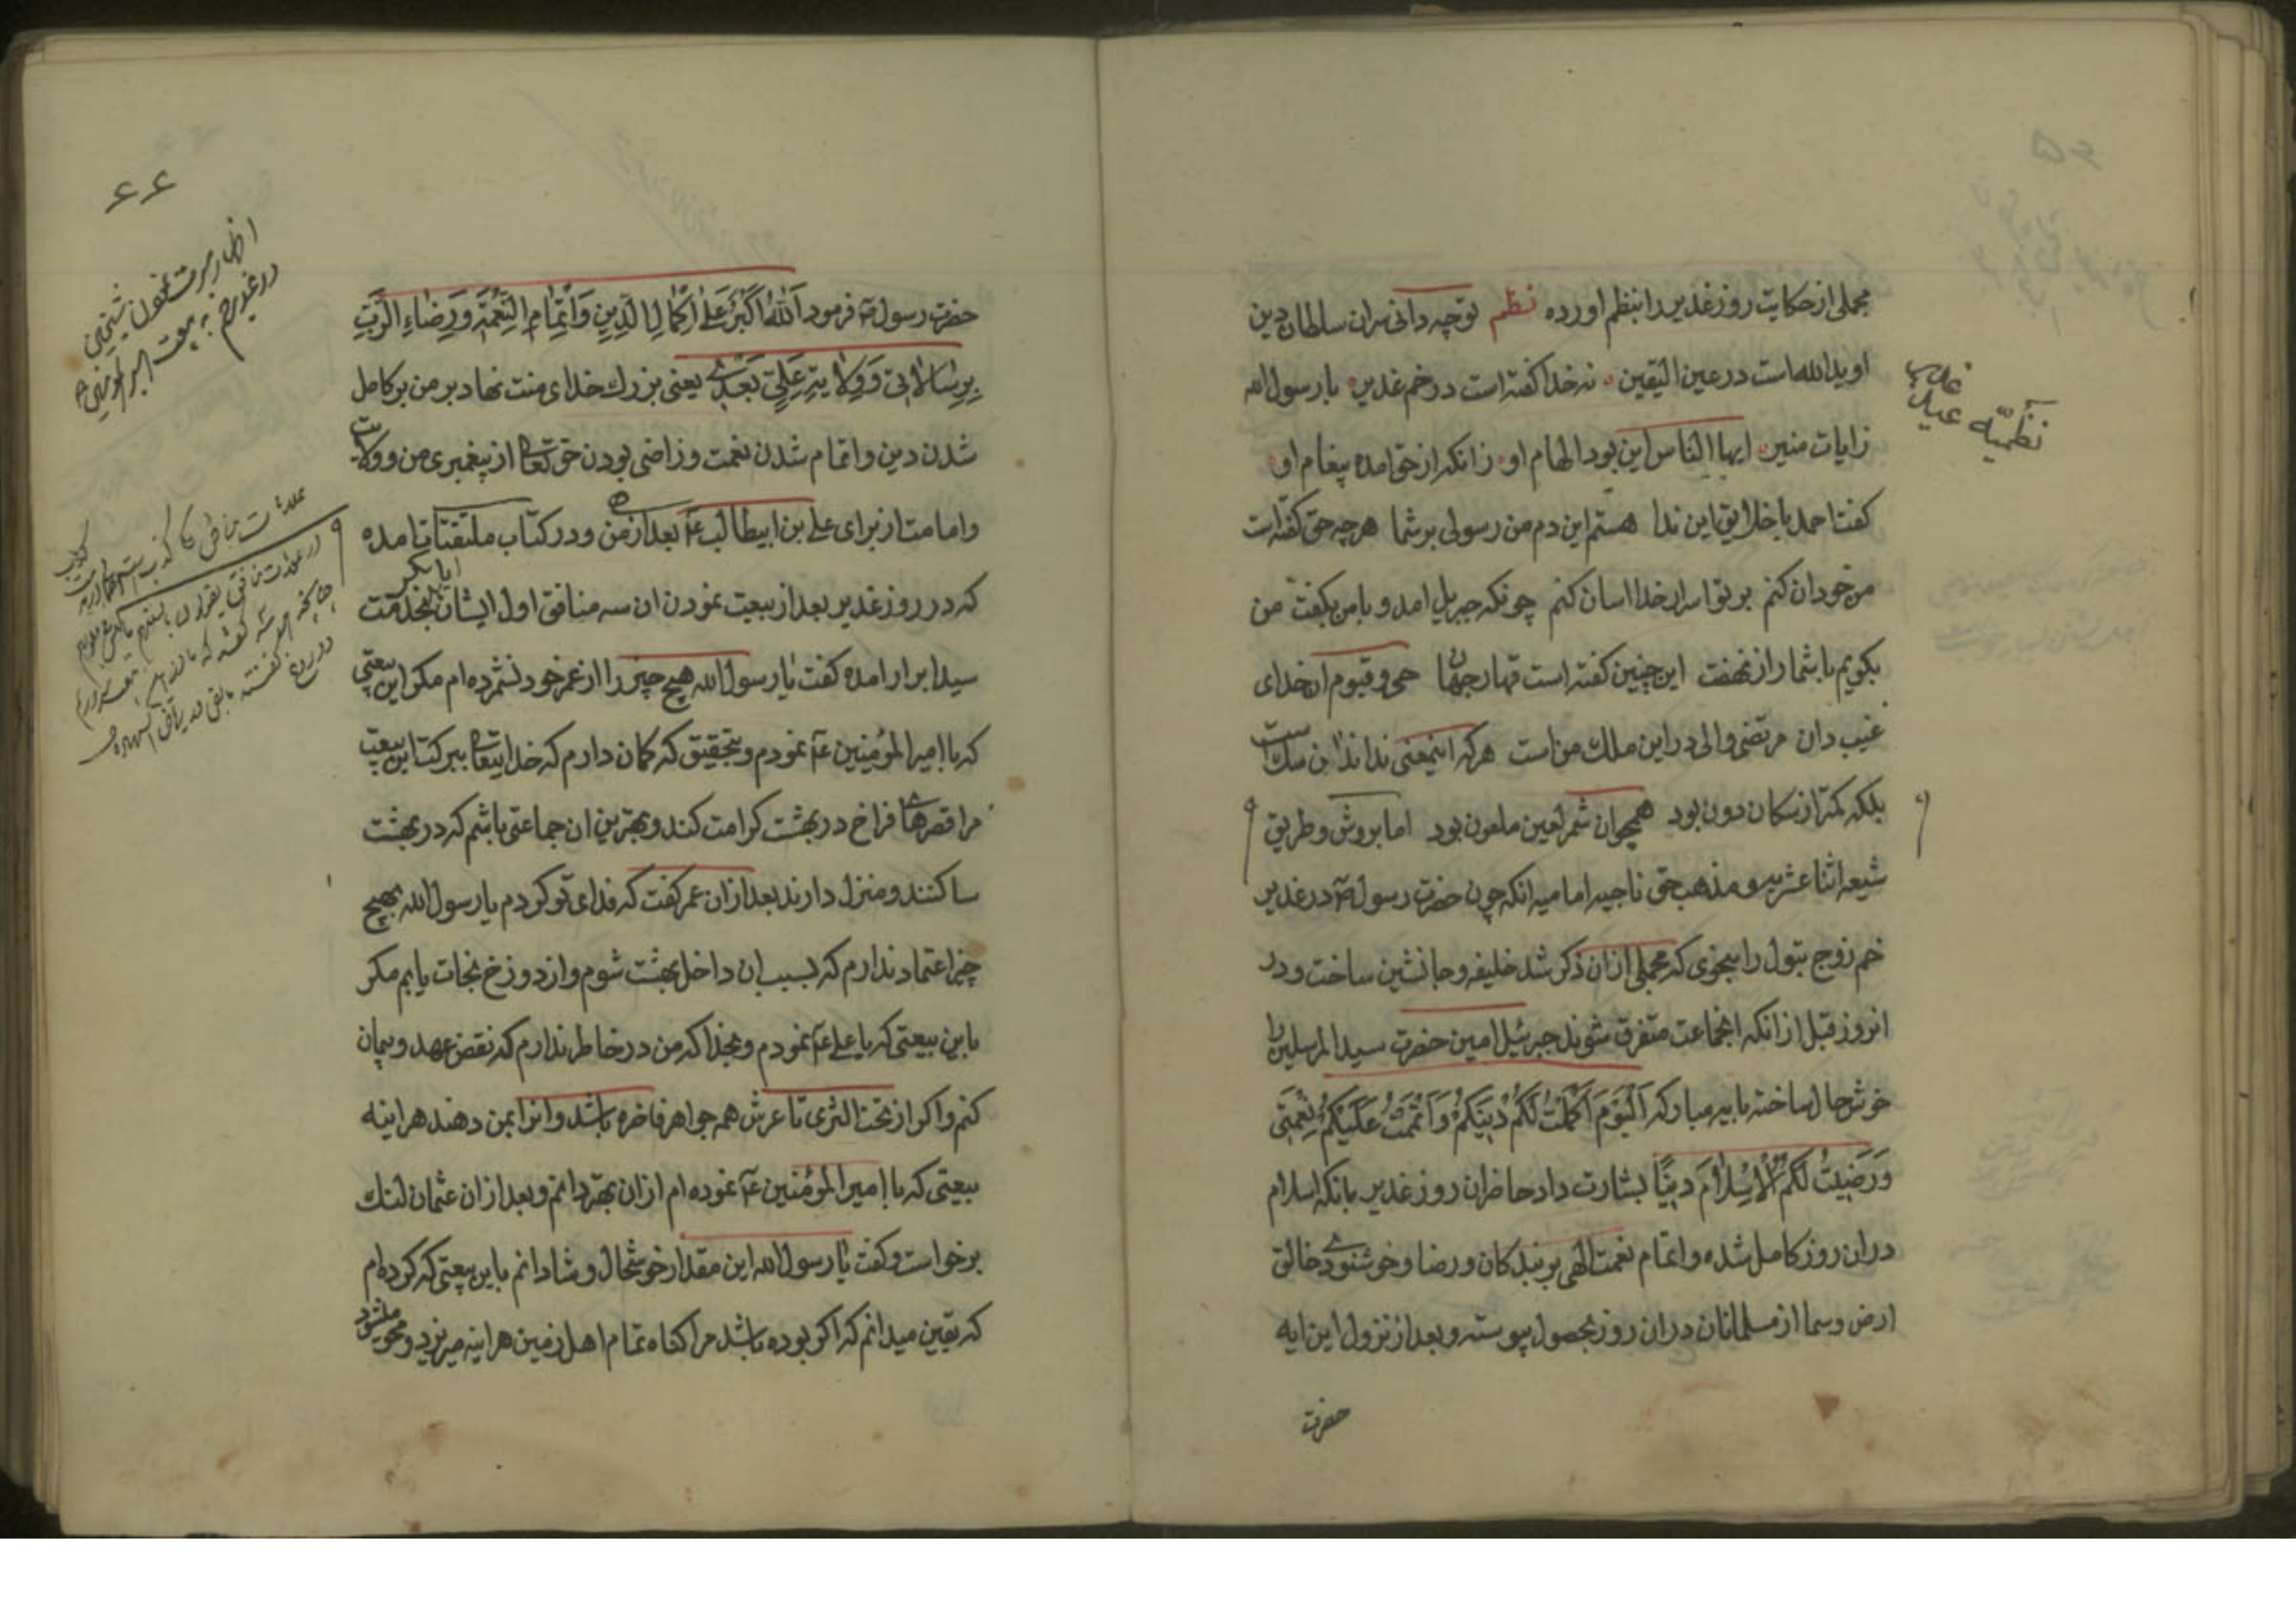 مجملی از حکایت روز غدیر را بنظم اورده نظم تو چه دانی سران سلطان دین
او ید الله است در عین الیقین نه خدا کفته است در خم غدیر یا رسول الله
ز ایات منیر ایها الناس این بود الهام او زانکه از حق امده پیغام او
کفت احمد با خلایق این ندا هستم این دم من رسولی بر شما هر چه حق کفته است
من خود ان کنم بر تو اسرار خدا اسان کنم چونکه جبریل امد و با من بکفت من
بکویم با شما راز نهفت این چنین کفته است قهار جهان حی و قیوم ان خدای
غیب دان مرتضی والی در این ملک من است هر که اینمعنی نداند ان سک است
بلکه کمتر از سکان دون بود همچو ان شمر لعین ملعون بود اما بروش و طریق
شیعه اثنا عشریه و مذهب حق ناجیه امامیه انکه چون حضرت رسول ص در غدیر
خم زوج بتول را بنحوی که مجملی از ان ذکر شد خلیفه و جانشین ساخت و در
انروز قبل از انکه انجماعت متفرق شوند جبرئیل امین حضرت سید المرسلین را
خوش حال ساخته بایه مبارکه اَلْیَوْمَ اَکْمَلْتُ لَکُمْ دینَکُمْ وَاَتْمَمْتُ عَلَیْکُمْ نِعْمَتی
وَرَضیتُ لَکُمُ الْاِسْلامَ دیناً بشارت داد حاضران روز غدیر بانکه اسلام
در ان روز کامل شده و اتمام نعمت الهی بر بندکان و رضا و خوشنودی خالق
ارض و سما از مسلمانان در ان روز بحصول پیوسته و بعد از نزول این ایه
حضرت
نظمیّه عید
غدیر
۶۶
حضرت رسول ص فرمود اَللّٰهُ اَکْبَرُ عَلیٰ اِکْمالِ الدّینِ وَاِتْمامِ النِّعْمَةِ وَرِضاءِ الرَّبِّ
بِرِسالاتی وَوِلایَةِ عَلِیٍّ بَعْدی یعنی بزرك خدای منت نهاد بر من بر کامل
شدن دین و اتمام شدن نعمت و راضی بودن حق تعالی از پیغمبری من و ولایت
و امامت از برای علی بن ابیطالب ع بعد از من و در کتاب ملتقتات امده
که در روز غدیر بعد از بیعت نمودن ان سه منافق اول ایشان ابابکر بخدمت
سید ابرار امده کفت یا رسول الله هیچ چیز را از عمر خود نشمرده ام مکر این بیعتی
که با امیر المؤمنین ع نمودم و بتحقیق که کمان دارم که خدایتعالی ببرکت این بیعت
مرا قصرهای فراخ در بهشت کرامت کند و بهترین ان جماعتی باشم که در بهشت
ساکنند و منزل دارند بعد از ان عمر کفت که فدای تو کردم یا رسول الله بهیچ
چیز اعتماد ندارم که بسبب ان داخل بهشت شوم و از دوزخ نجات یابم مکر
باین بیعتی که با علی ع نمودم و بخدا که من در خاطر ندارم که نقض عهد و پیمان
کنم و اکر از تحت الثری تا عرش همه جواهر فاخره باشد و انرا بمن دهند هراینه
بیعتی که با امیر المؤمنین ع نموده ام از ان بهتر دانم و بعد از ان عثمان لنك
برخواست و کفت یا رسول الله این مقدار خوشحال و شادانم باین بیعتی که کرده ام
که یقین میدانم که اکر بوده باشد مرا کناه تمام اهل زمین هراینه میریزد و محو میشود